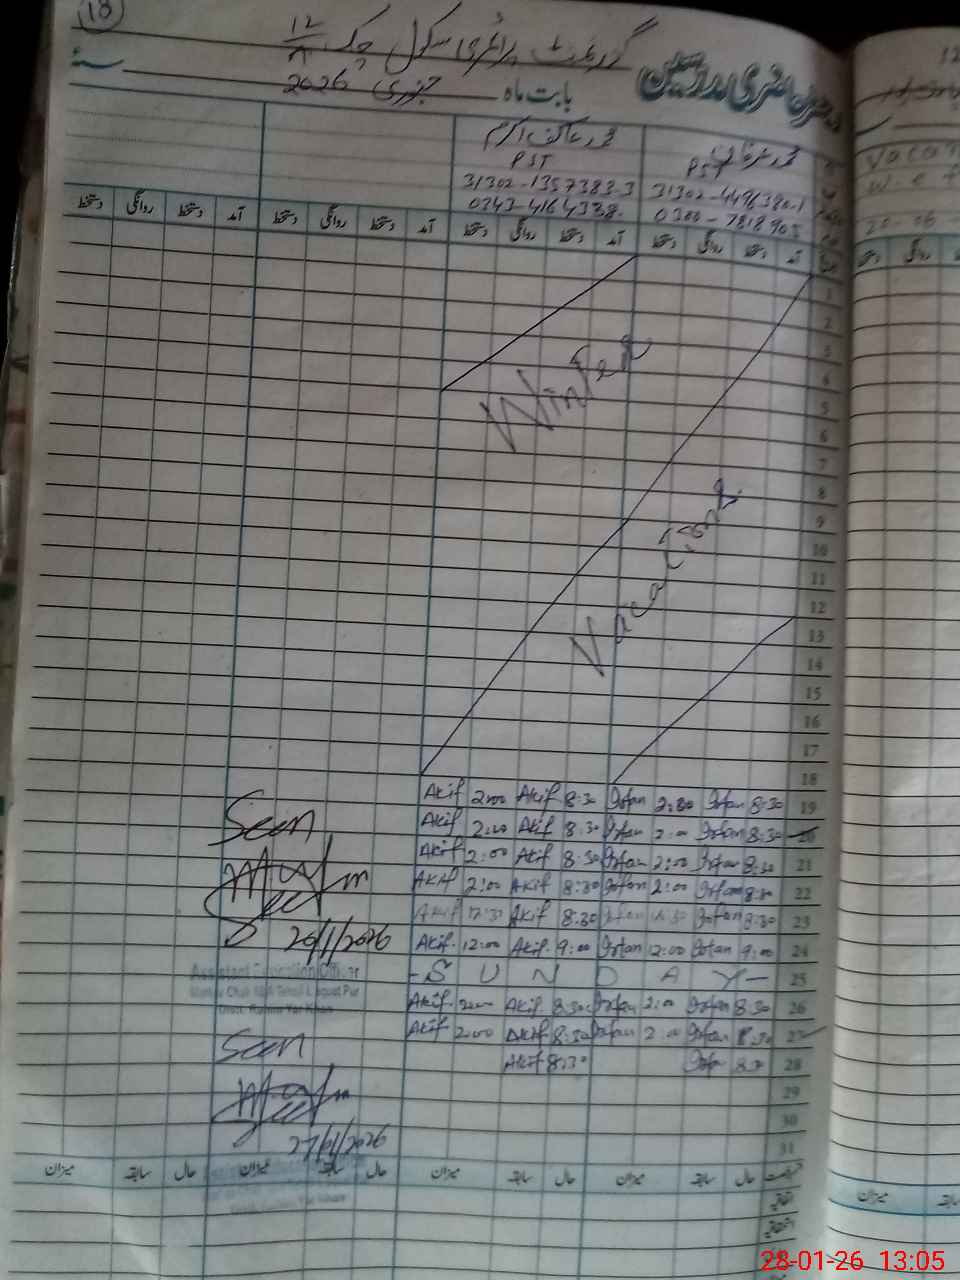 18
گورنمنٹ پرائمری سکول چک 12/
حاضری مدرسین
بابت ماہ جنوری 2026 سنہ
محمد عرفان
PST
31302-4496380-1
0300-7818905
محمد عاکف اکرم
PST
31302-1357383-3
0343-4164338.
آمد دستخط روانگی دستخط آمد دستخط روانگی دستخط آمد دستخط روانگی دستخط آمد دستخط روانگی دستخط
1
2
3
4
5
6
7
8
9
10
11
12
13
14
15
16
17
18
Winter
Vacations
Akif 2:00 Akif 8:30 Irfan 2:00 Irfan 8:30 19
Akif 2:00 Akif 8:30 Irfan 2:00 Irfan 8:30 20
Akif 2:00 Akif 8:30 Irfan 2:00 Irfan 8:30 21
Akif 2:00 Akif 8:30 Irfan 2:00 Irfan 8:30 22
Akif 12:30 Akif 8:30 Irfan 12:30 Irfan 8:30 23
Akif. 12:00 Akif. 9:00 Irfan 12:00 Irfan 9:00 24
- S U N D A Y - 25
Akif. 2:00 Akif 8:30 Irfan 2:00 Irfan 8:30 26
Akif 2:00 Akif 8:30 Irfan 2:00 Irfan 8:30 27
Akif 8:30 Irfan 8:30 28
29
30
31
Seen
20/1/2026
Assistant Education Officer
Tehsil Liaquat Pur
Distt. Rahim Yar Khan
Seen
27/01/2026
حال سابقہ میزان حال سابقہ میزان حال سابقہ میزان حال سابقہ میزان
اتفاقیہ
استحقاقیہ
12
Vacat
w.e.f
20-06-
دستخط روانگی
میزان سابقہ
28-01-26 13:05